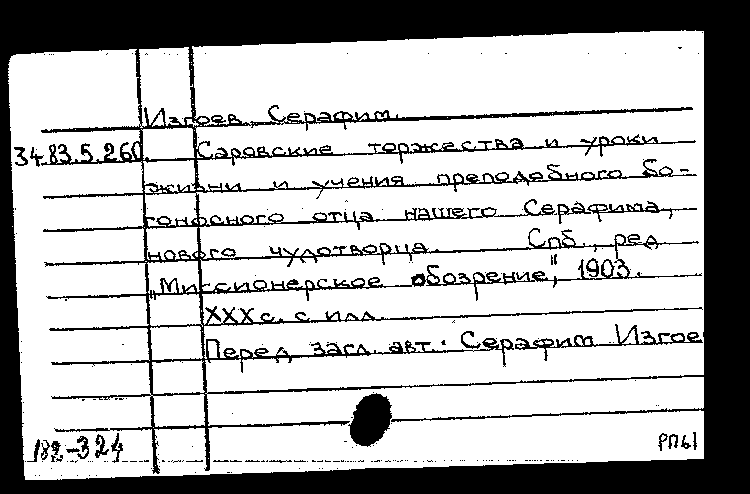 Изгоев, Серафим.
34.83.5.260. Саровские торжества и уроки
жизни и учения преподобного бо-
гоносного отца нашего Серафима,
нового чудотворца. Спб., ред
„Миссионерское обозрение", 1903.
XXX с. с илл.
Перед загл. авт.: Серафим Изгое
182-324
РПБ1